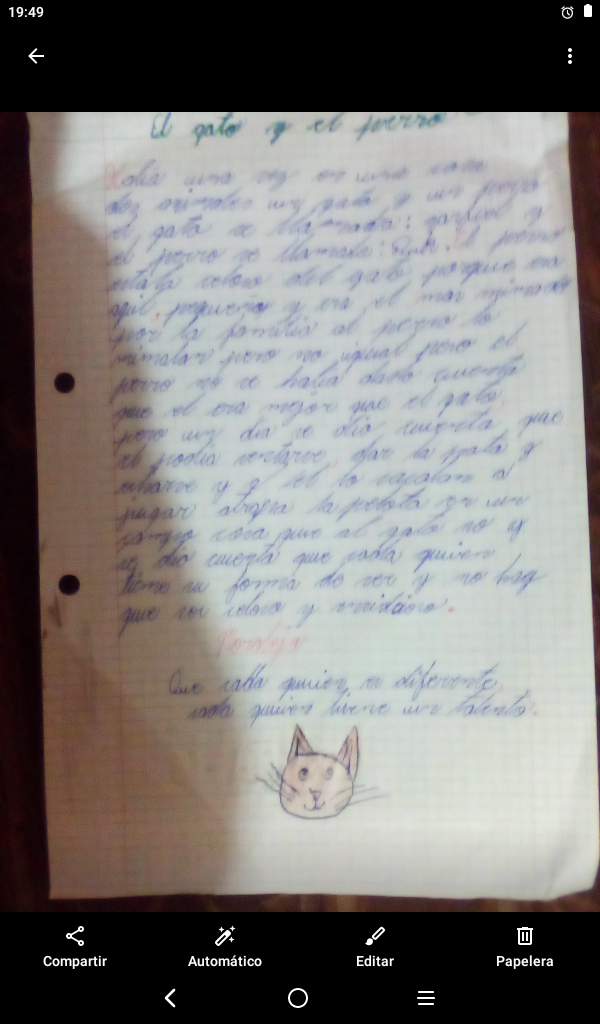 19:49
El gato y el perro
Había una vez en una casa
dos animales un gato y un perro
el gato se llamaba: y
el perro se llamaba: El perro
estaba celoso del gato porque era
agil, pequeño y era el mas mimado
por la familia al perro lo
mimaban pero no igual pero el
perro no se habia dado cuenta
que el era mejor que el gato
pero un dia se dio cuenta que
el podia sentarse, dar la pata y
y a el lo sacaban a
jugar la pelota en un
campo cosa que al gato no y
se dio cuenta que cada quien
tiene su forma de ser y no hay
que ser celoso y envidioso.
Moraleja
Que cada quien es diferente
cada quien tiene un talento.
Compartir
Automático
Editar
Papelera